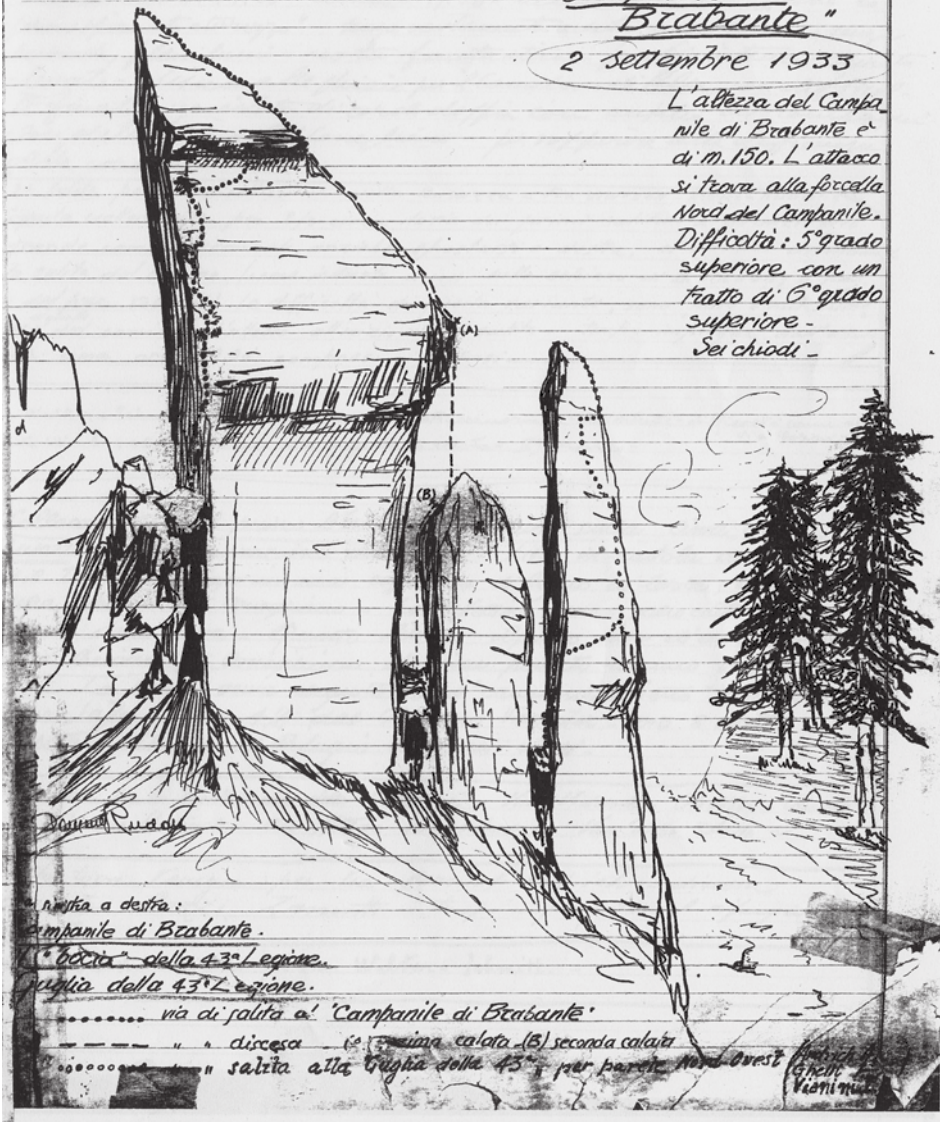 Brabante"
2 settembre 1933
L'altezza del Campa_
nile di Brabante è
di m. 150. L'attacco
si trova alla forcella
Nord del Campanile.
Difficoltà: 5° grado
superiore con un
tratto di 6° grado
superiore -
Sei chiodi -
(A)
(B)
a destra:
Campanile di Brabante.
"bocia" della 43ª Legione.
Guglia della 43ª Legione.
via di salita al "Campanile di Brabante"
" " discesa calata (B) seconda calata
" " salita alla Guglia della 43ª " per parete Nord Ovest